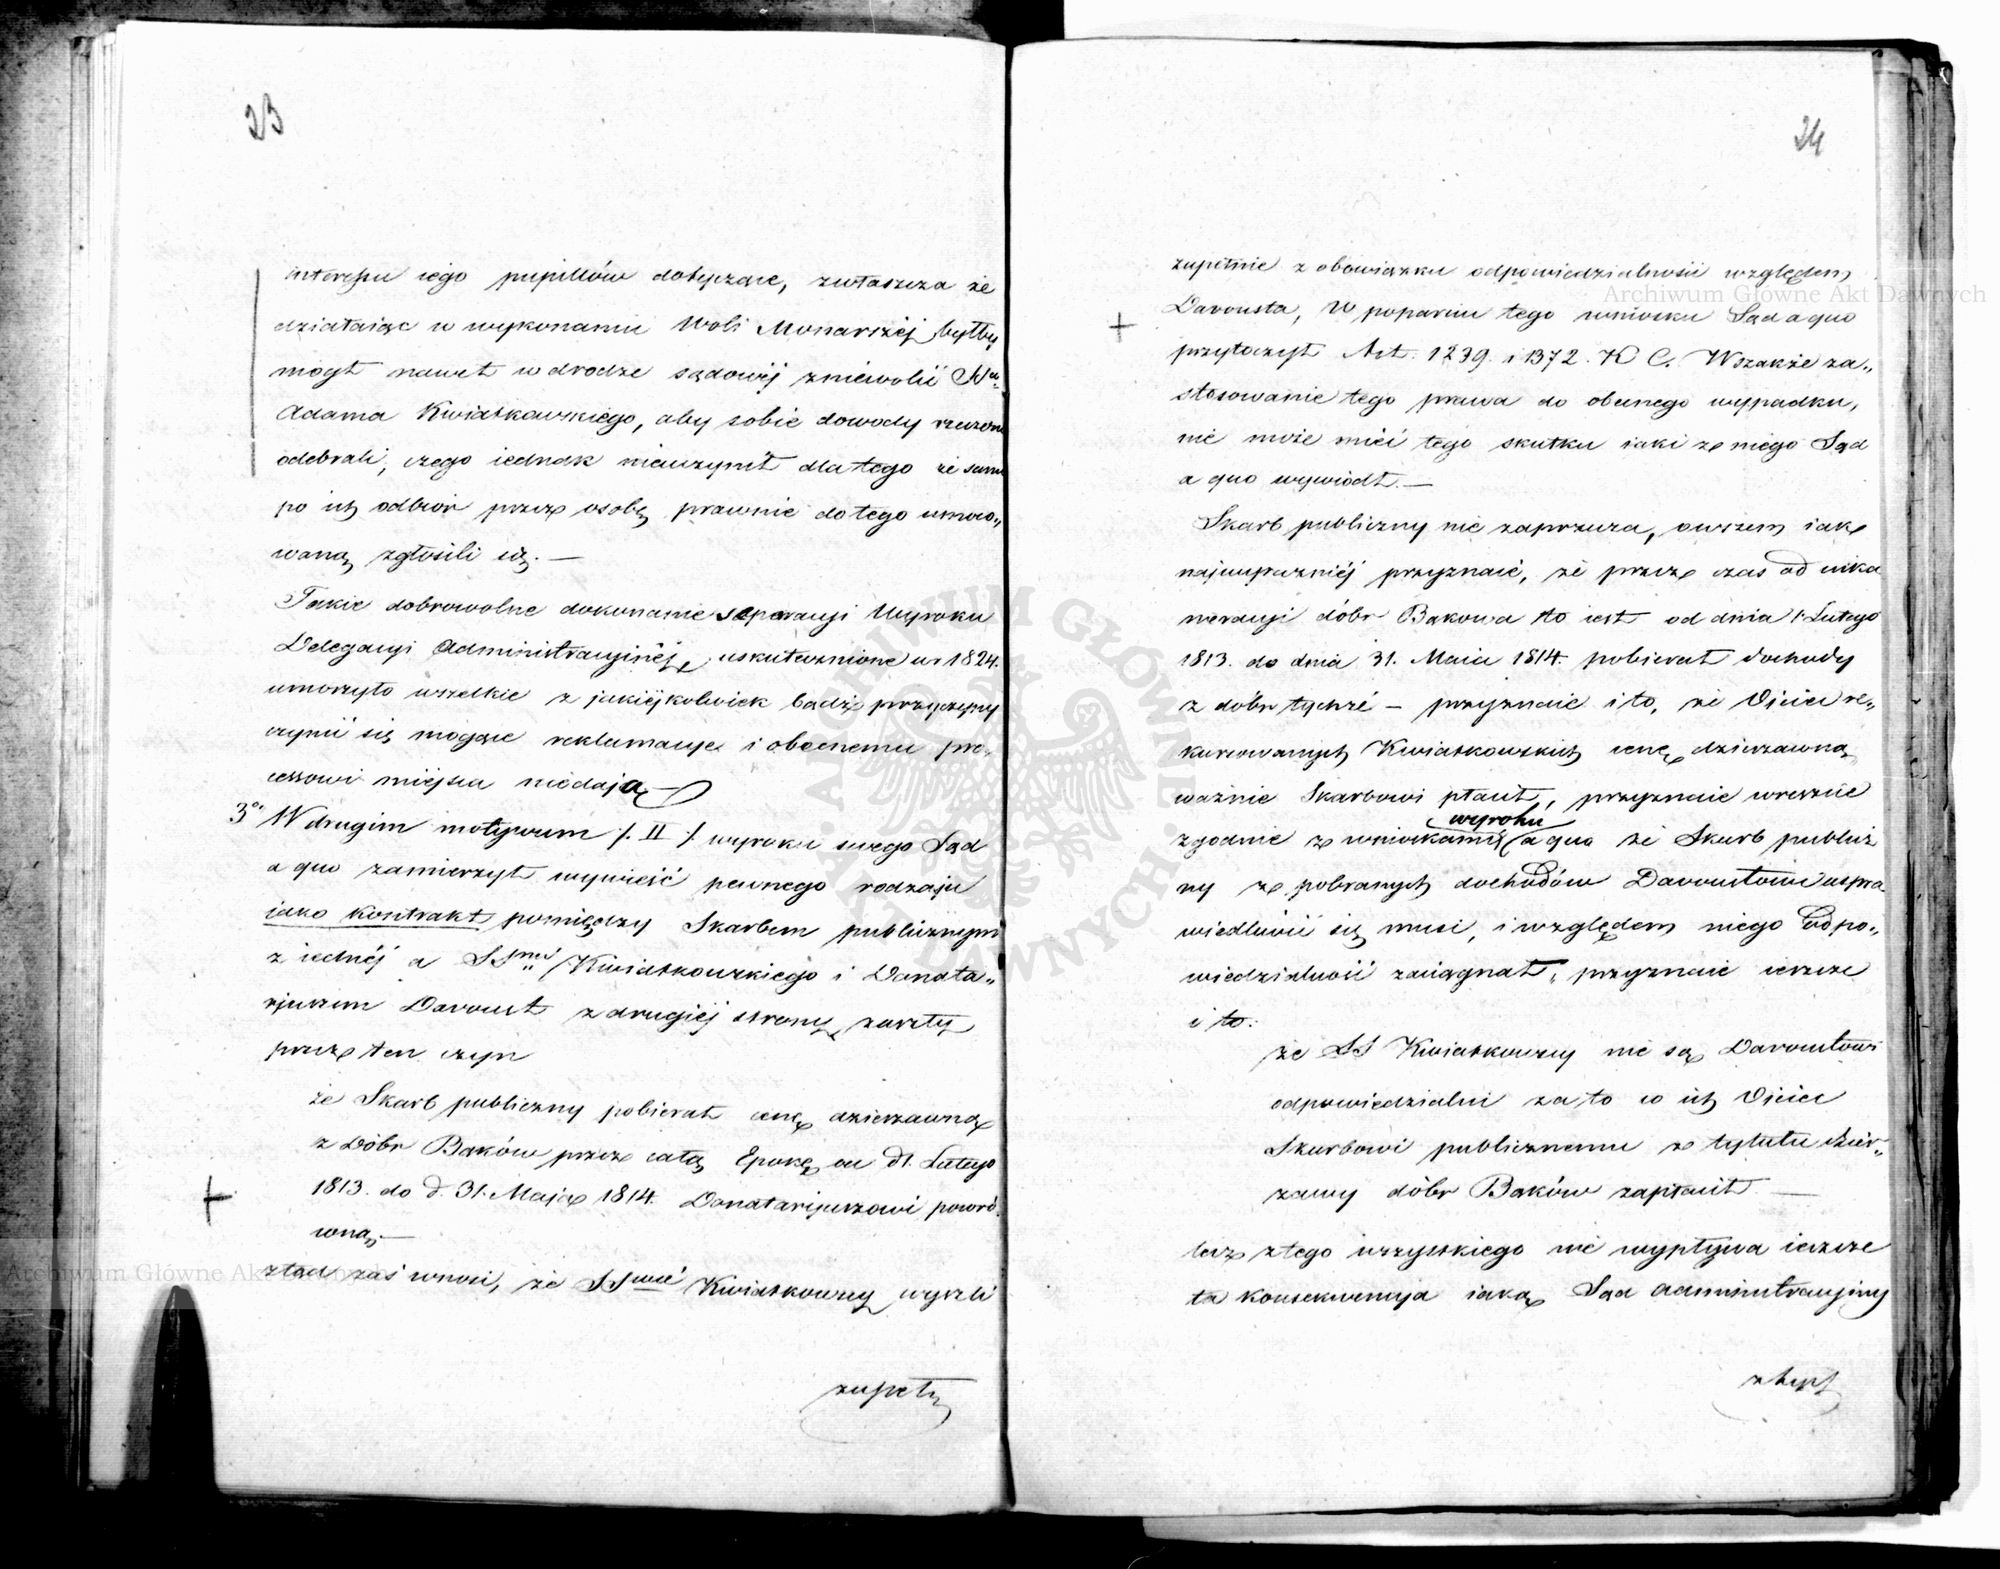 23
interessu iego pupillów dotyczące, zwłaszcza że
działaiąc w wykonaniu Woli Monarszéj byłby
mógł nawet w drodze sądowéj zniewolić
Adama Kwiatkowskiego, aby sobie dowody rzeczone
odebrali, czego iednak nieuczynił dla tego że sami
po ich odbiór przez osobę prawnie do tego umoco„
waną zgłosili się. —
Takie dobrowolne dokonanie separacyi Wyroku
Delegacyi Administracyinéj, uskutecznione w r 1824.
umorzyło wszelkie z jakiéjkolwiek bądź przyczyny
czynić się mogące reklamacye i obecnemu pro„
cessowi miejsca niedają —
3o W drugim motywum /. II ./ wyroku swego Sąd
a quo zamierzył wywieść pewnego rodzaju
jako kontrakt pomiędzy Skarbem publicznym
z iednéj a SSmi Kwiatkowskiego i Donata„
ryuszem Davoust z drugiéj strony zaszły
przez ten czyn
że Skarb publiczny pobierał cenę dzierżawną
z Dóbr Baków przez całą Epokę od d 1. Lutego
1813. do d. 31. Maja 1814. Donataryuszowi powró
coną. —
ztąd zaś wnosi, że SSwie Kwiatkowscy wyszli
zupeł
24
zupełnie z obowiązku odpowiedzialności względem
Davousta, W poparciu tego wniosku Sąd a quo
przytoczył Art. 1239. i 1372. K C. Wszakże za„
stosowanie tego prawa do obecnego wypadku,
nie może mieć tego skutku iaki z niego Sąd
a quo wywiódł. —
Skarb publiczny nie zaprzecza, owszem iak
najwyraźniéj przyznaie, że przez czas od inka
meracyi dóbr Bakowa to iest od dnia 1 Lutego
1813. do dnia 31. Maia 1814. pobierał dochody
z dóbr tychże — przyznaie i to, że Ojciec re„
kursowanych Kwiatkowskich cenę dzierżawną
ważnie Skarbowi płacił, przyznaie wreszcie
zgodnie z wnioskami wyroku a quo że Skarb publicz
ny z pobranych dochodów Davoustowi uspra
wiedliwić się musi, i względem niego odpo„
wiedzialność zaciągnął, przyznaie ieszcze
i to:
że SS Kwiatkowscy nie są Davoustowi
odpowiedzialni za to co ich Ojciec
Skarbowi publicznemu z tytułu dzier„
żawy dóbr Baków zapłacił —
lecz z tego wszystkiego nie wypływa ieszcze
ta konsekwencya iaką Sąd administracyiny